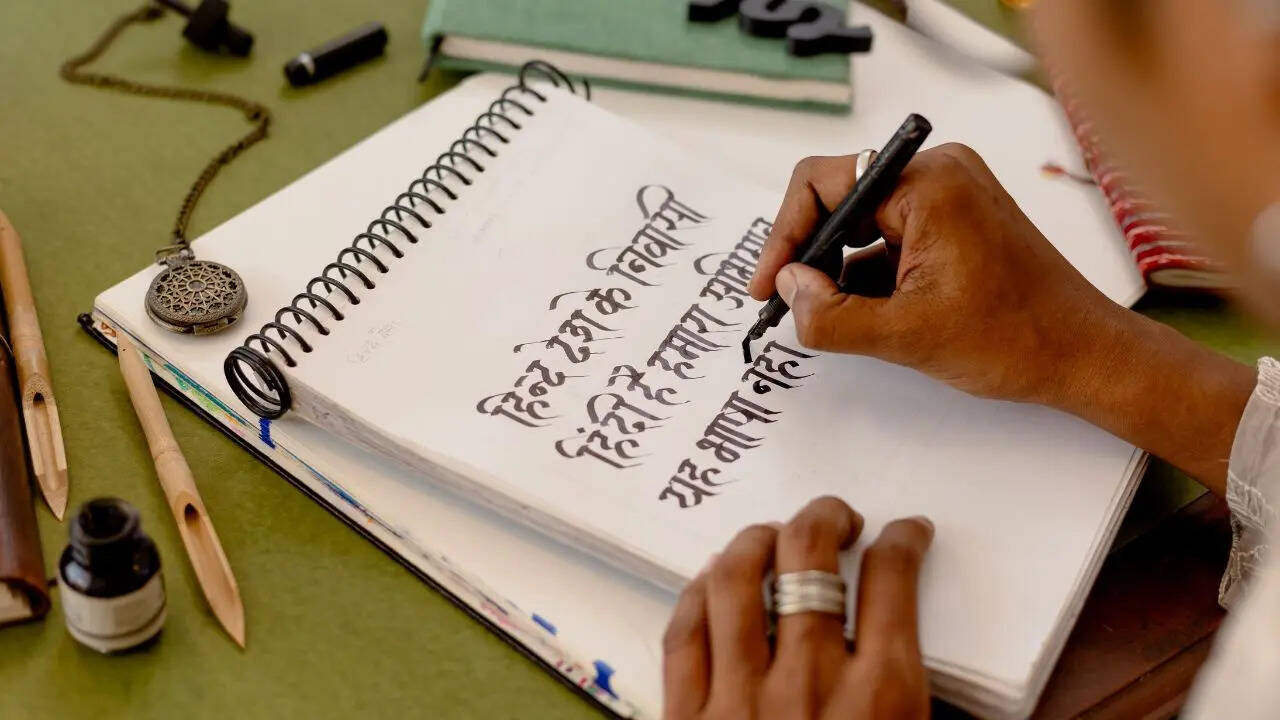 हिन्द देश के निवासी
हिंदी है हमारा अभिमान
यह भाषा नहा